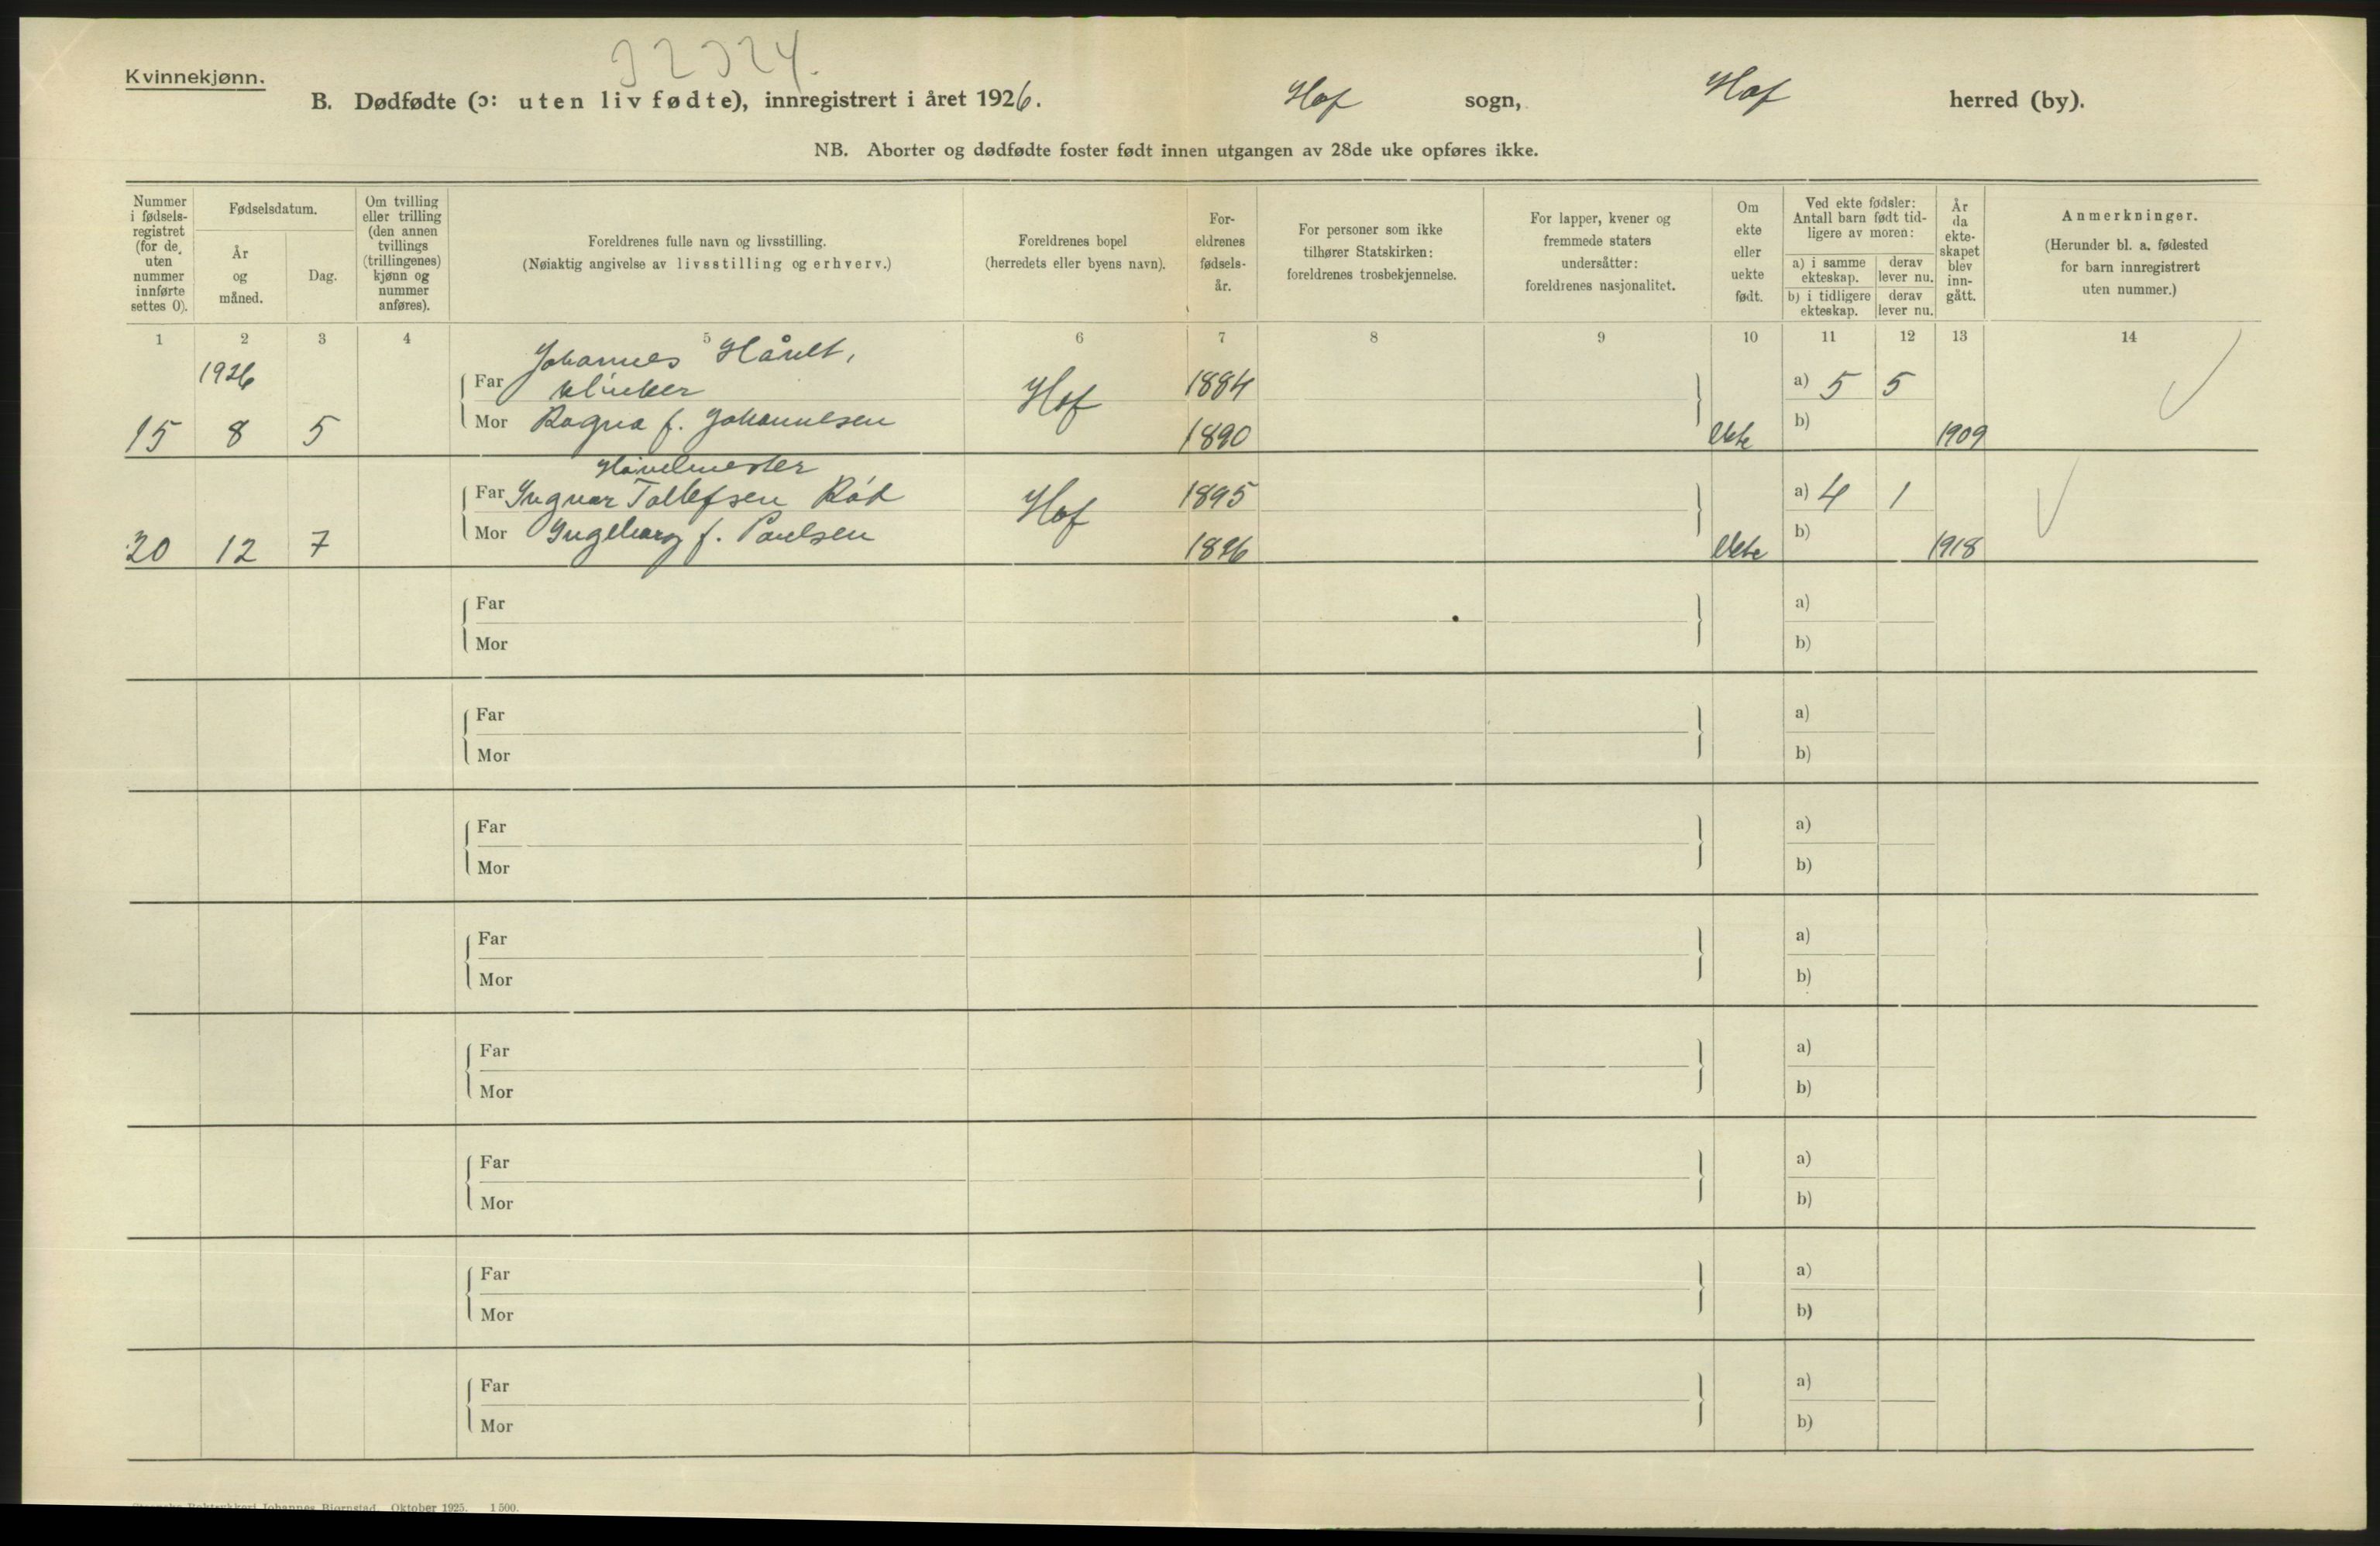 Kvinnekjønn.
B. Dødfødte (ɔ: uten liv fødte), innregistrert i året 1926. Hof sogn, Hof herred (by).
NB. Aborter og dødfødte foster født innen utgangen av 28de uke opføres ikke.
Nummer i fødsels-registret (for de uten nummer innførte settes 0).
Fødselsdatum.
År og måned.
Dag.
Om tvilling eller trilling (den annen tvillings (trillingenes) kjønn og nummer anføres).
Foreldrenes fulle navn og livsstilling.
(Nøiaktig angivelse av livsstilling og erhverv.)
Foreldrenes bopel
(herredets eller byens navn).
For-eldrenes fødsels-år.
For personer som ikke tilhører Statskirken: foreldrenes trosbekjennelse.
For lapper, kvener og fremmede staters undersåtter: foreldrenes nasjonalitet.
Om ekte eller uekte født.
Ved ekte fødsler: Antall barn født tid-ligere av moren:
a) i samme ekteskap. derav lever nu.
b) i tidligere ekteskap. derav lever nu.
År da ekte-skapet blev inn-gått.
Anmerkninger.
(Herunder bl. a. fødested for barn innregistrert uten nummer.)
1 2 3 4 5 6 7 8 9 10 11 12 13 14
1926 Johannes
Far Hof 1884 a) 5 5
15 8 5 Mor Ragna f. Johannesen 1890 ekte b) 1909
Far Ingvar Tollefsen Hof 1895 a) 4 1
20 12 7 Mor Ingeborg f. Paulsen 1896 ekte b) 1918
Far a)
Mor b)
Far a)
Mor b)
Far a)
Mor b)
Far a)
Mor b)
Far a)
Mor b)
Far a)
Mor b)
Far a)
Mor b)
Far a)
Mor b)
Johannes Bjørnstad. Oktober 1925. 1500.